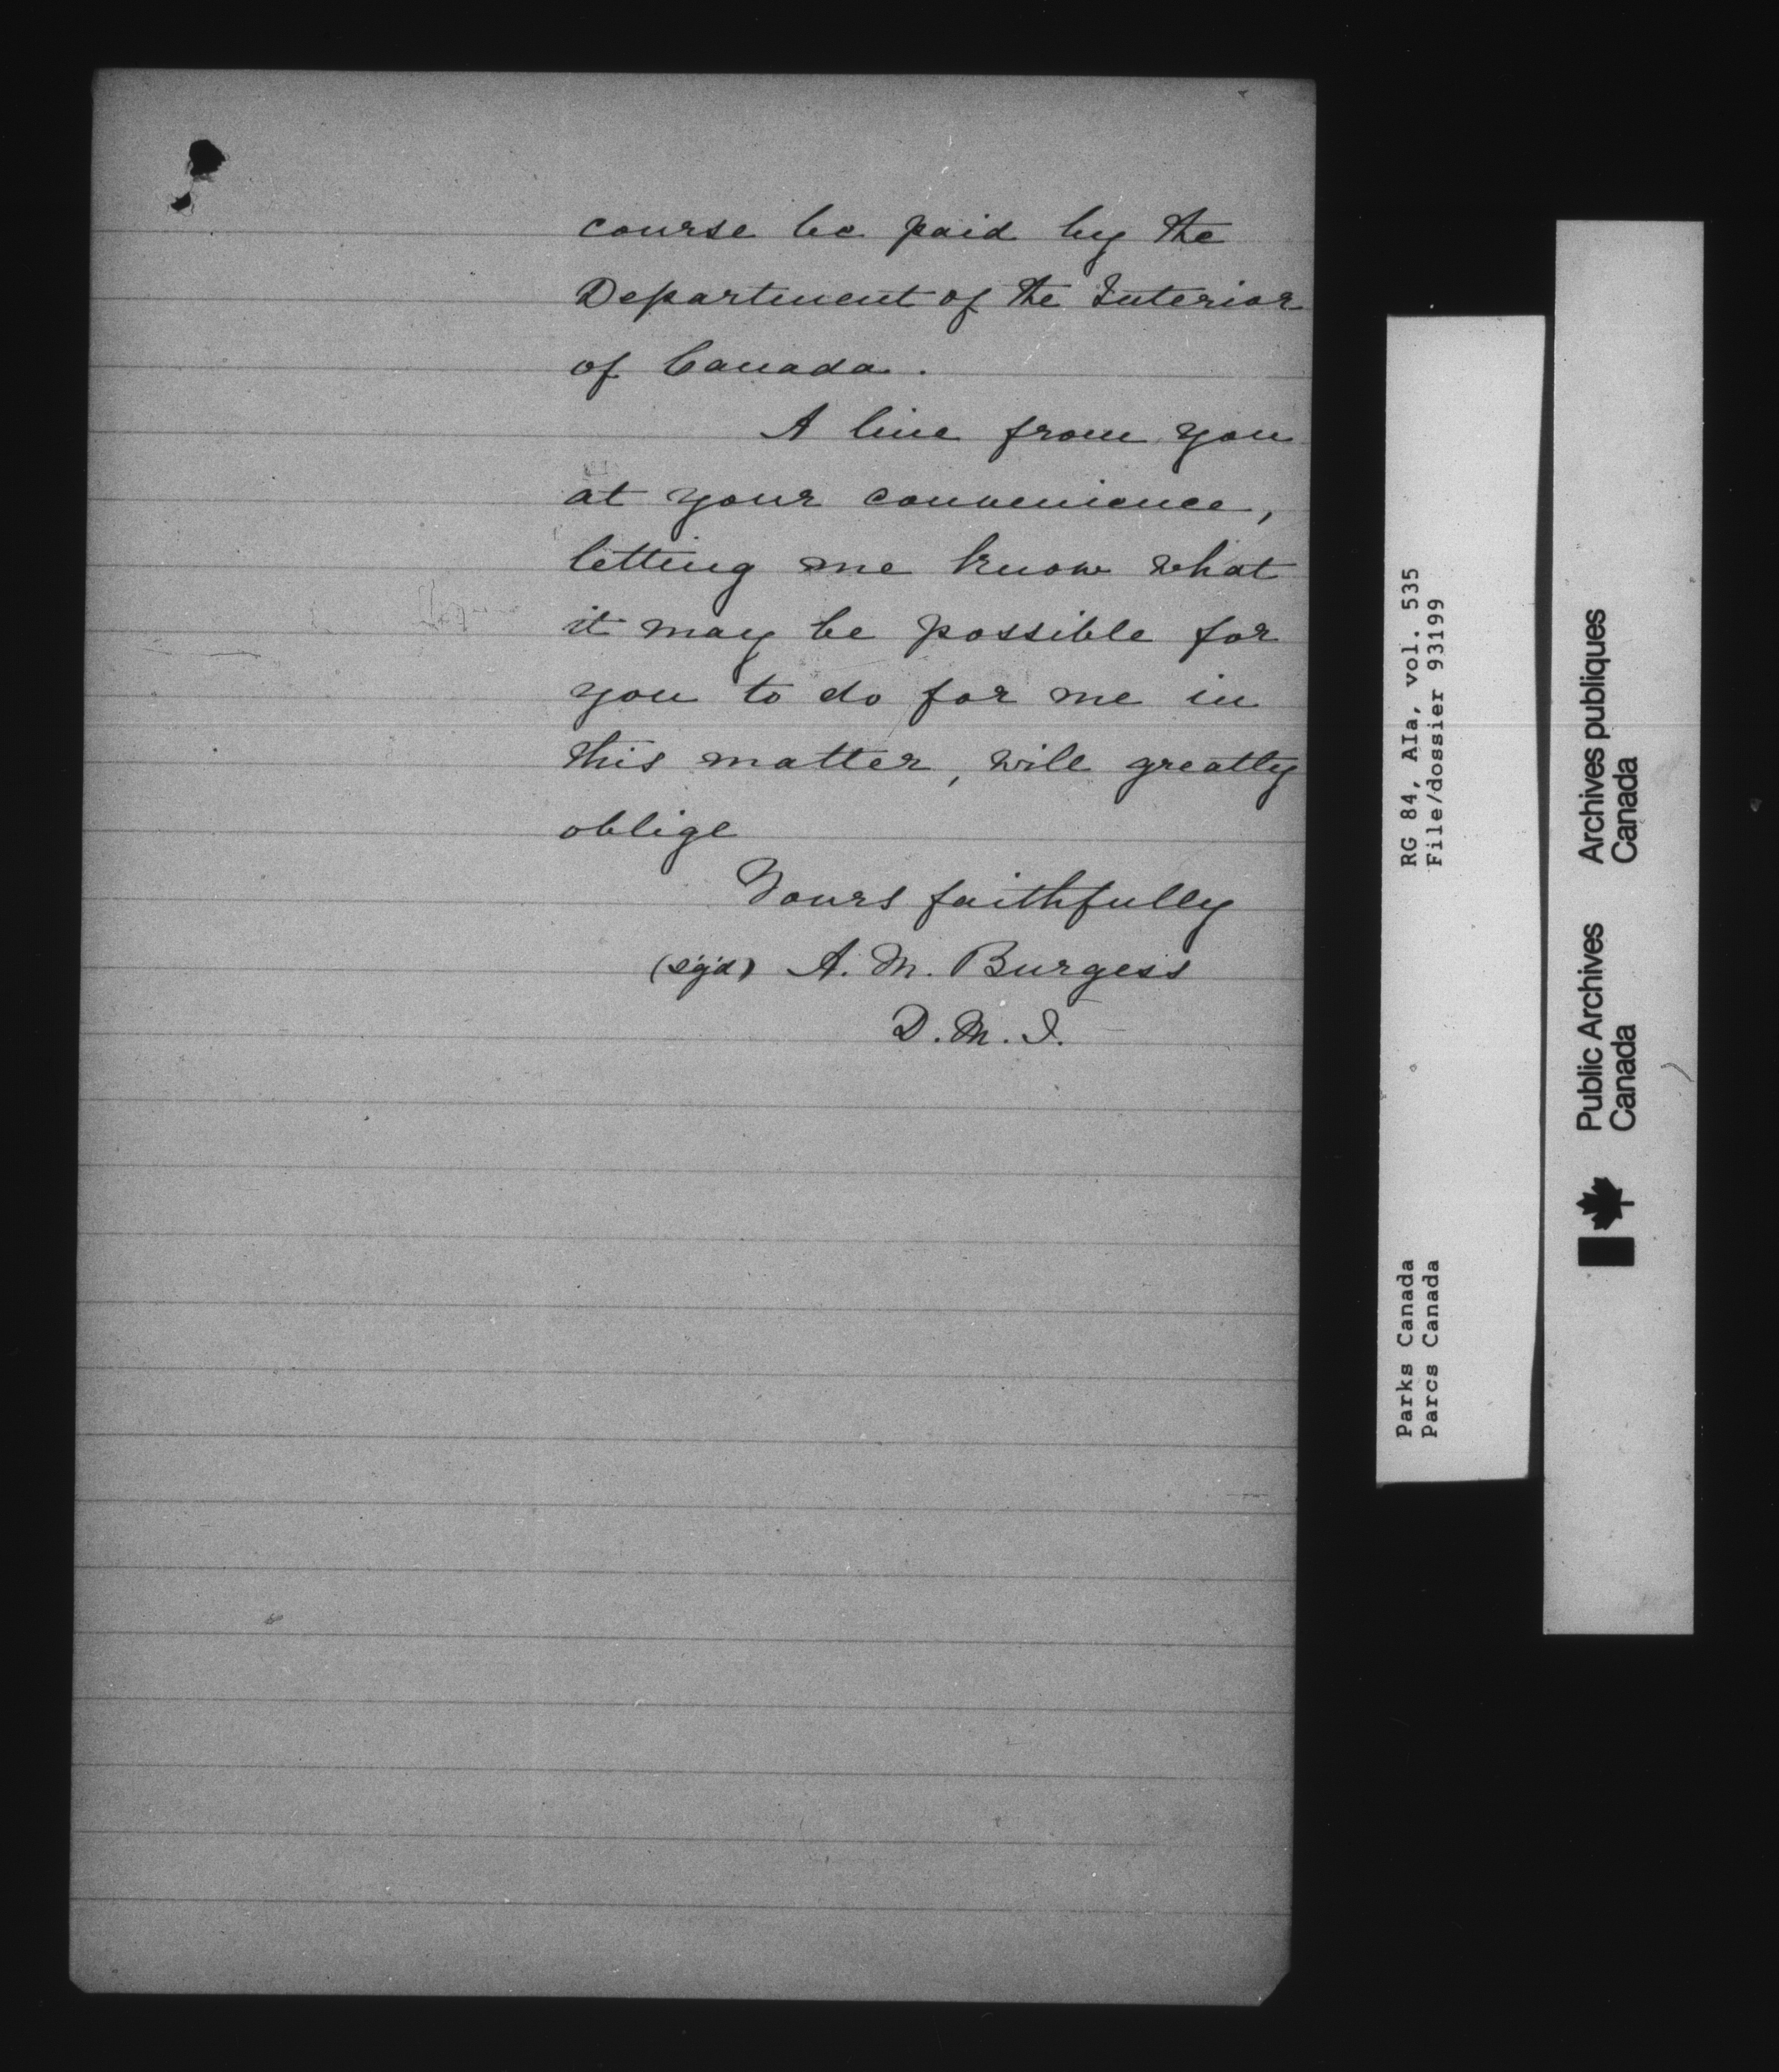 course be paid by the
Department of the Interior
of Canada.
A line from you
at your convenience,
letting me know what
it may be possible for
you to do for me in
this matter, will greatly
oblige
Yours faithfully
(sg'd) A. M. Burgess
D. M. I.
Parks Canada RG 84, A1a, vol. 535
Parcs Canada File/dossier 93199
Public Archives Archives publiques
Canada Canada